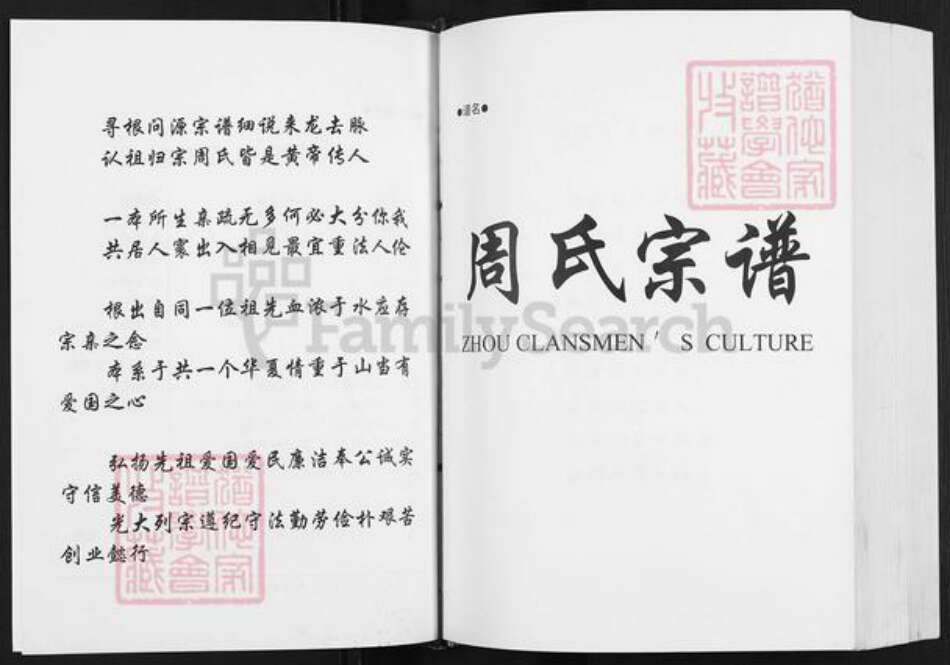 寻根问源宗谱细说来龙去脉
认祖归宗周氏皆是黄帝传人
一本所生亲疏无多何必大分你我
共居人寰出入相见最宜重法人伦
根出自同一位祖先血浓于水应存
宗亲之念
本系于共一个华夏情重于山当有
爱国之心
弘扬先祖爱国爱民廉洁奉公诚实
守信美德
光大列宗遵纪守法勤劳俭朴艰苦
创业懿行
猶他家
譜學會
收藏
●谱名●
猶他家
譜學會
收藏
周氏宗谱
ZHOU CLANSMEN'S CULTURE
FamilySearch